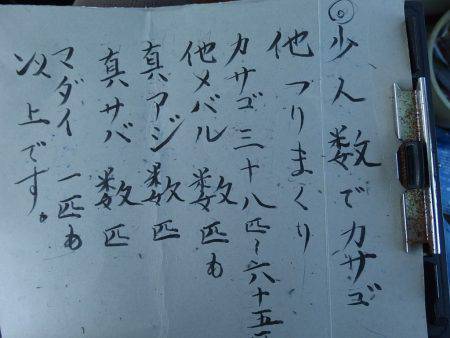 ◎少人数でカサゴ
他つりまくり
カサゴ三十八匹~六十五
他メバル数匹も
真アジ数匹
真サバ数匹
マダイ一匹も
以上です。